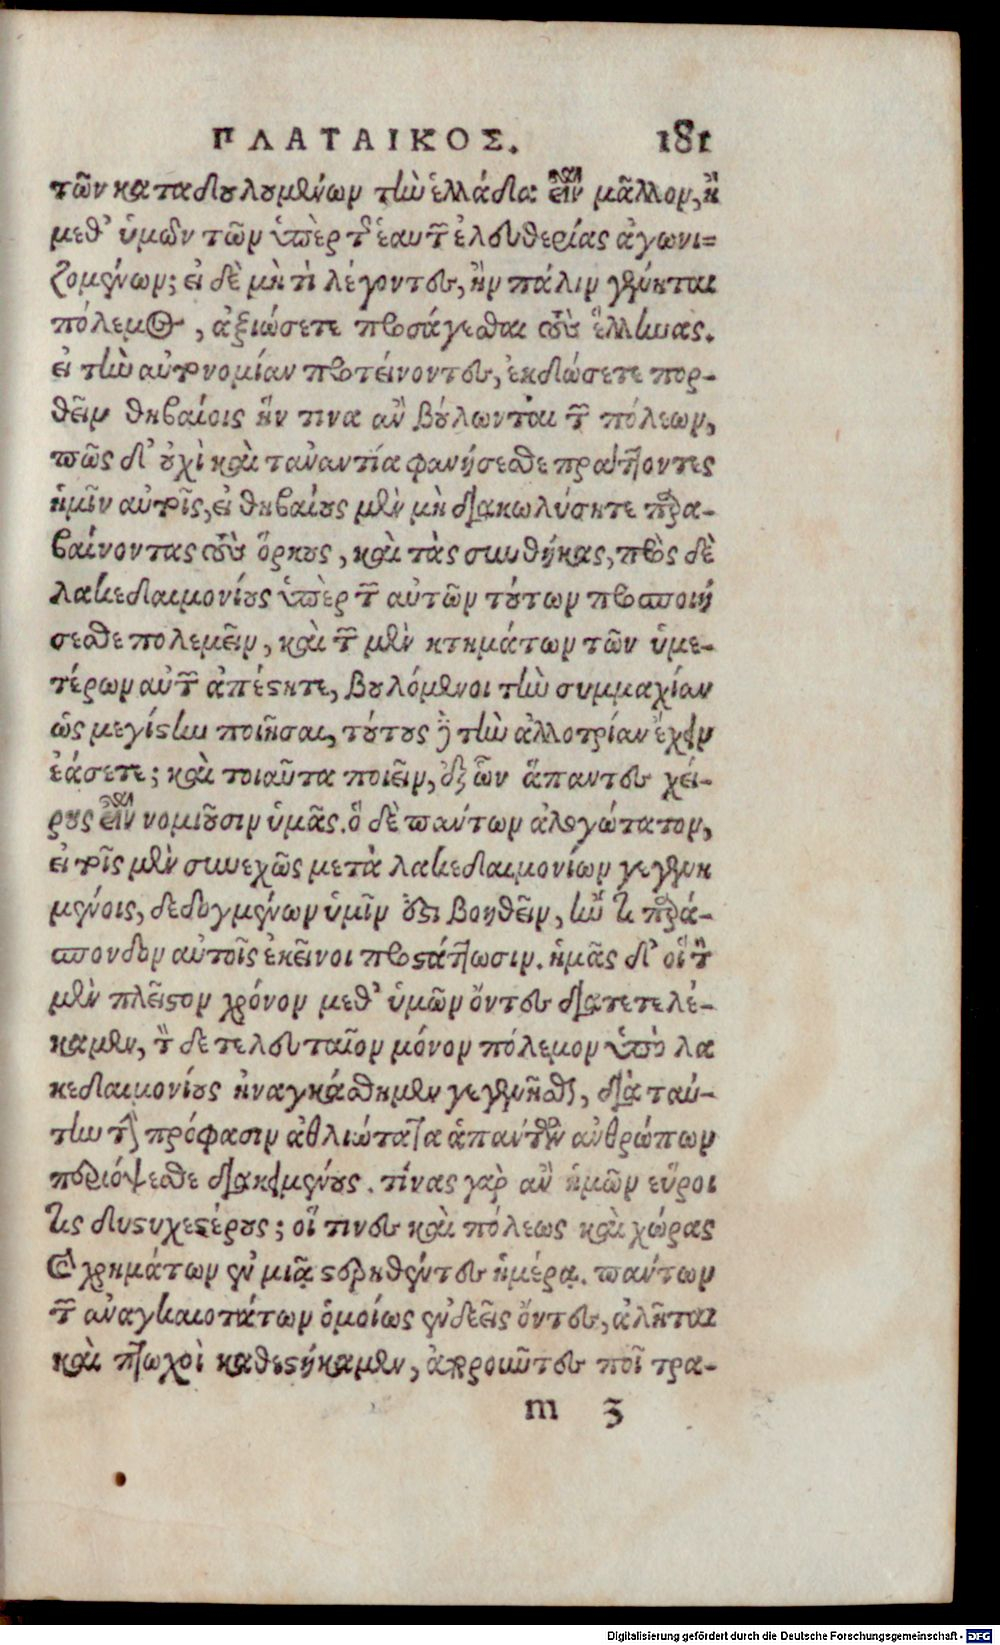 ΠΛΑΤΑΙΚΟΣ. 181
τῶν καταδουλουμένων τὴν ἑλλάδα εἶναι μᾶλλον, ἢ
μεθ' ὑμῶν τῶν ὑπὲρ τῆς ἑαυτῶν ἐλευθερίας ἀγωνι=
ζομένων; εἰ δὲ μὴ τὶ λέγοντες, ἢν πάλιν γένηται
πόλεμος, ἀξιώσετε προσάγεσθαι τοὺς ἕλληνας.
εἰ τὴν αὐτονομίαν προτείνοντες, ἐκδώσετε πορ-
θεῖν θηβαίοις ἥν τινα ἂν βούλωνται τῶν πόλεων,
πῶς δ' οὐχὶ καὶ τἀναντία φανήσεσθε πράττοντες
ἡμῖν αὐτοῖς, εἰ θηβαίους μὲν μὴ διακωλύσητε παρα-
βαίνοντας τοὺς ὅρκους, καὶ τὰς συνθήκας, πρὸς δὲ
λακεδαιμονίους ὑπὲρ τῶν αὐτῶν τούτων προσποιή
σεσθε πολεμεῖν, καὶ τῶν μὲν κτημάτων τῶν ὑμε-
τέρων αὐτῶν ἀπέστητε, βουλόμενοι τὴν συμμαχίαν
ὡς μεγίστην ποιῆσαι, τούτους δὲ τὴν ἀλλοτρίαν ἔχειν
ἐάσετε; καὶ τοιαῦτα ποιεῖν, ἐξ ὧν ἅπαντες χεί-
ρους εἶναι νομιοῦσιν ὑμᾶς. ὃ δὲ πάντων ἀλογώτατον,
εἰ τοῖς μὲν συνεχῶς μετὰ λακεδαιμονίων γεγενη
μένοις, δεδογμένων ὑμῖν ἐστι βοηθεῖν, ἤν τι παρά-
σπονδον αὐτοῖς ἐκεῖνοι προστάττωσιν. ἡμᾶς δ' οἳ τὸν
μὲν πλεῖστον χρόνον μεθ' ὑμῶν ὄντες διατετελέ-
καμεν, τὸν δὲ τελευταῖον μόνον πόλεμον ὑπὸ λα
κεδαιμονίους ἠναγκάσθημεν γεγενῆσθαι, διὰ ταύ-
την τὴν πρόφασιν ἀθλιώτατα ἁπάντων ἀνθρώπων
περιόψεσθε διακειμένους. τίνας γὰρ ἂν ἡμῶν εὕροι
τις δυστυχεστέρους; οἵ τινες καὶ πόλεως καὶ χώρας
καὶ χρημάτων ἐν μιᾷ στερηθέντες ἡμέρᾳ. πάντων
τῶν ἀναγκαιοτάτων ὁμοίως ἐνδεεῖς ὄντες, ἀλῆται
καὶ πτωχοὶ καθεστήκαμεν, ἀποροῦντες ποῖ τρα-
m 3
Digitalisierung gefördert durch die Deutsche Forschungsgemeinschaft - DFG